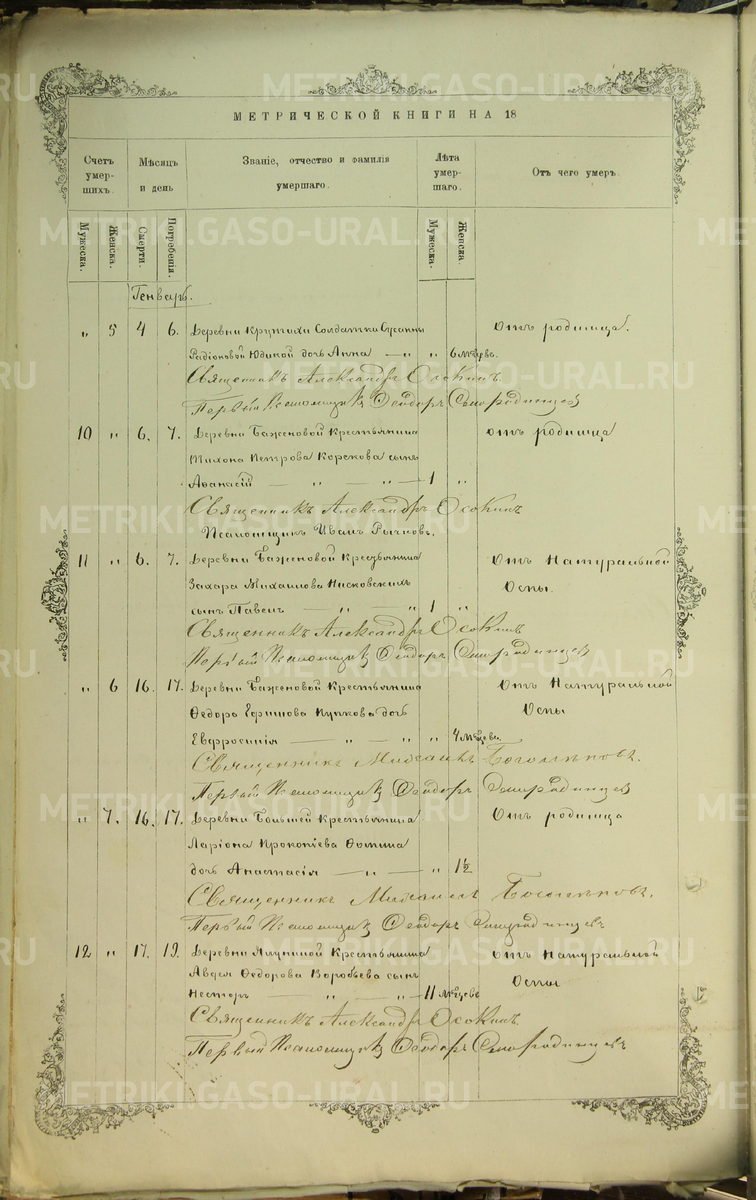 МЕТРИЧЕСКОЙ КНИГИ НА 18
Счетъ умер-щихъ.
Мѣсяцъ и день
Званіе, отчество и фамилія умершаго.
Лѣта умер-шаго.
Отъ чего умеръ.
Мужеска.
Женска.
Смерти.
Погребенія.
Мужеска.
Женска.
Генварь.
„ 5 4 6. Деревни Крутихи Солдатки Сусанны Отъ родимца.
Радіоновой Юдиной дочь Анна — „ „ 6 мѣсяцев.
Священникъ Александръ Осокинъ
Первый Псаломщикъ Ѳеодоръ Смородинцевъ
10 „ 6. 7. Деревни Баженовой Крестьянина отъ родимца
Тихона Петрова Корскова сынъ
Аѳанасій — „ — „ — 1 „
Священникъ Александръ Осокинъ
Псаломщикъ Иванъ Рычковъ.
11 „ 6. 7. Деревни Баженовой Крестьянина Отъ Натуральной
Захара Михаилова сынъ Павелъ Оспы.
— „ — „ 1 „
Священникъ Александръ Осокинъ
Первый Псаломщикъ Ѳеодоръ Смородинцевъ
„ 6 16. 17. Деревни Баженовой Крестьянина Отъ Натуральной
Ѳедора Ефимова Пупкова дочь Оспы
Евфросинія — „ — „ „ 4 мѣсяцев.
Священникъ Михаилъ Боголѣповъ.
Первый Псаломщикъ Ѳеодоръ Смородинцевъ
„ 7. 16. 17. Деревни Большей Крестьянина Отъ родимца
Ларіона Прокопіева Ѳомина
дочь Анастасія — „ — „ 1½
Священникъ Михаилъ Боголѣповъ.
Первый Псаломщикъ Ѳеодоръ Смородинцевъ
12 „ 17. 19. Деревни Крестьянина отъ Натуральной
Авдея Ѳедорова Воробьева сынъ Оспы
Несторъ — „ — „ — 11 мѣсяцев
Священникъ Александръ Осокинъ.
Первый Псаломщикъ Ѳеодоръ Смородинцевъ
METRIKI.GASO-URAL.RU